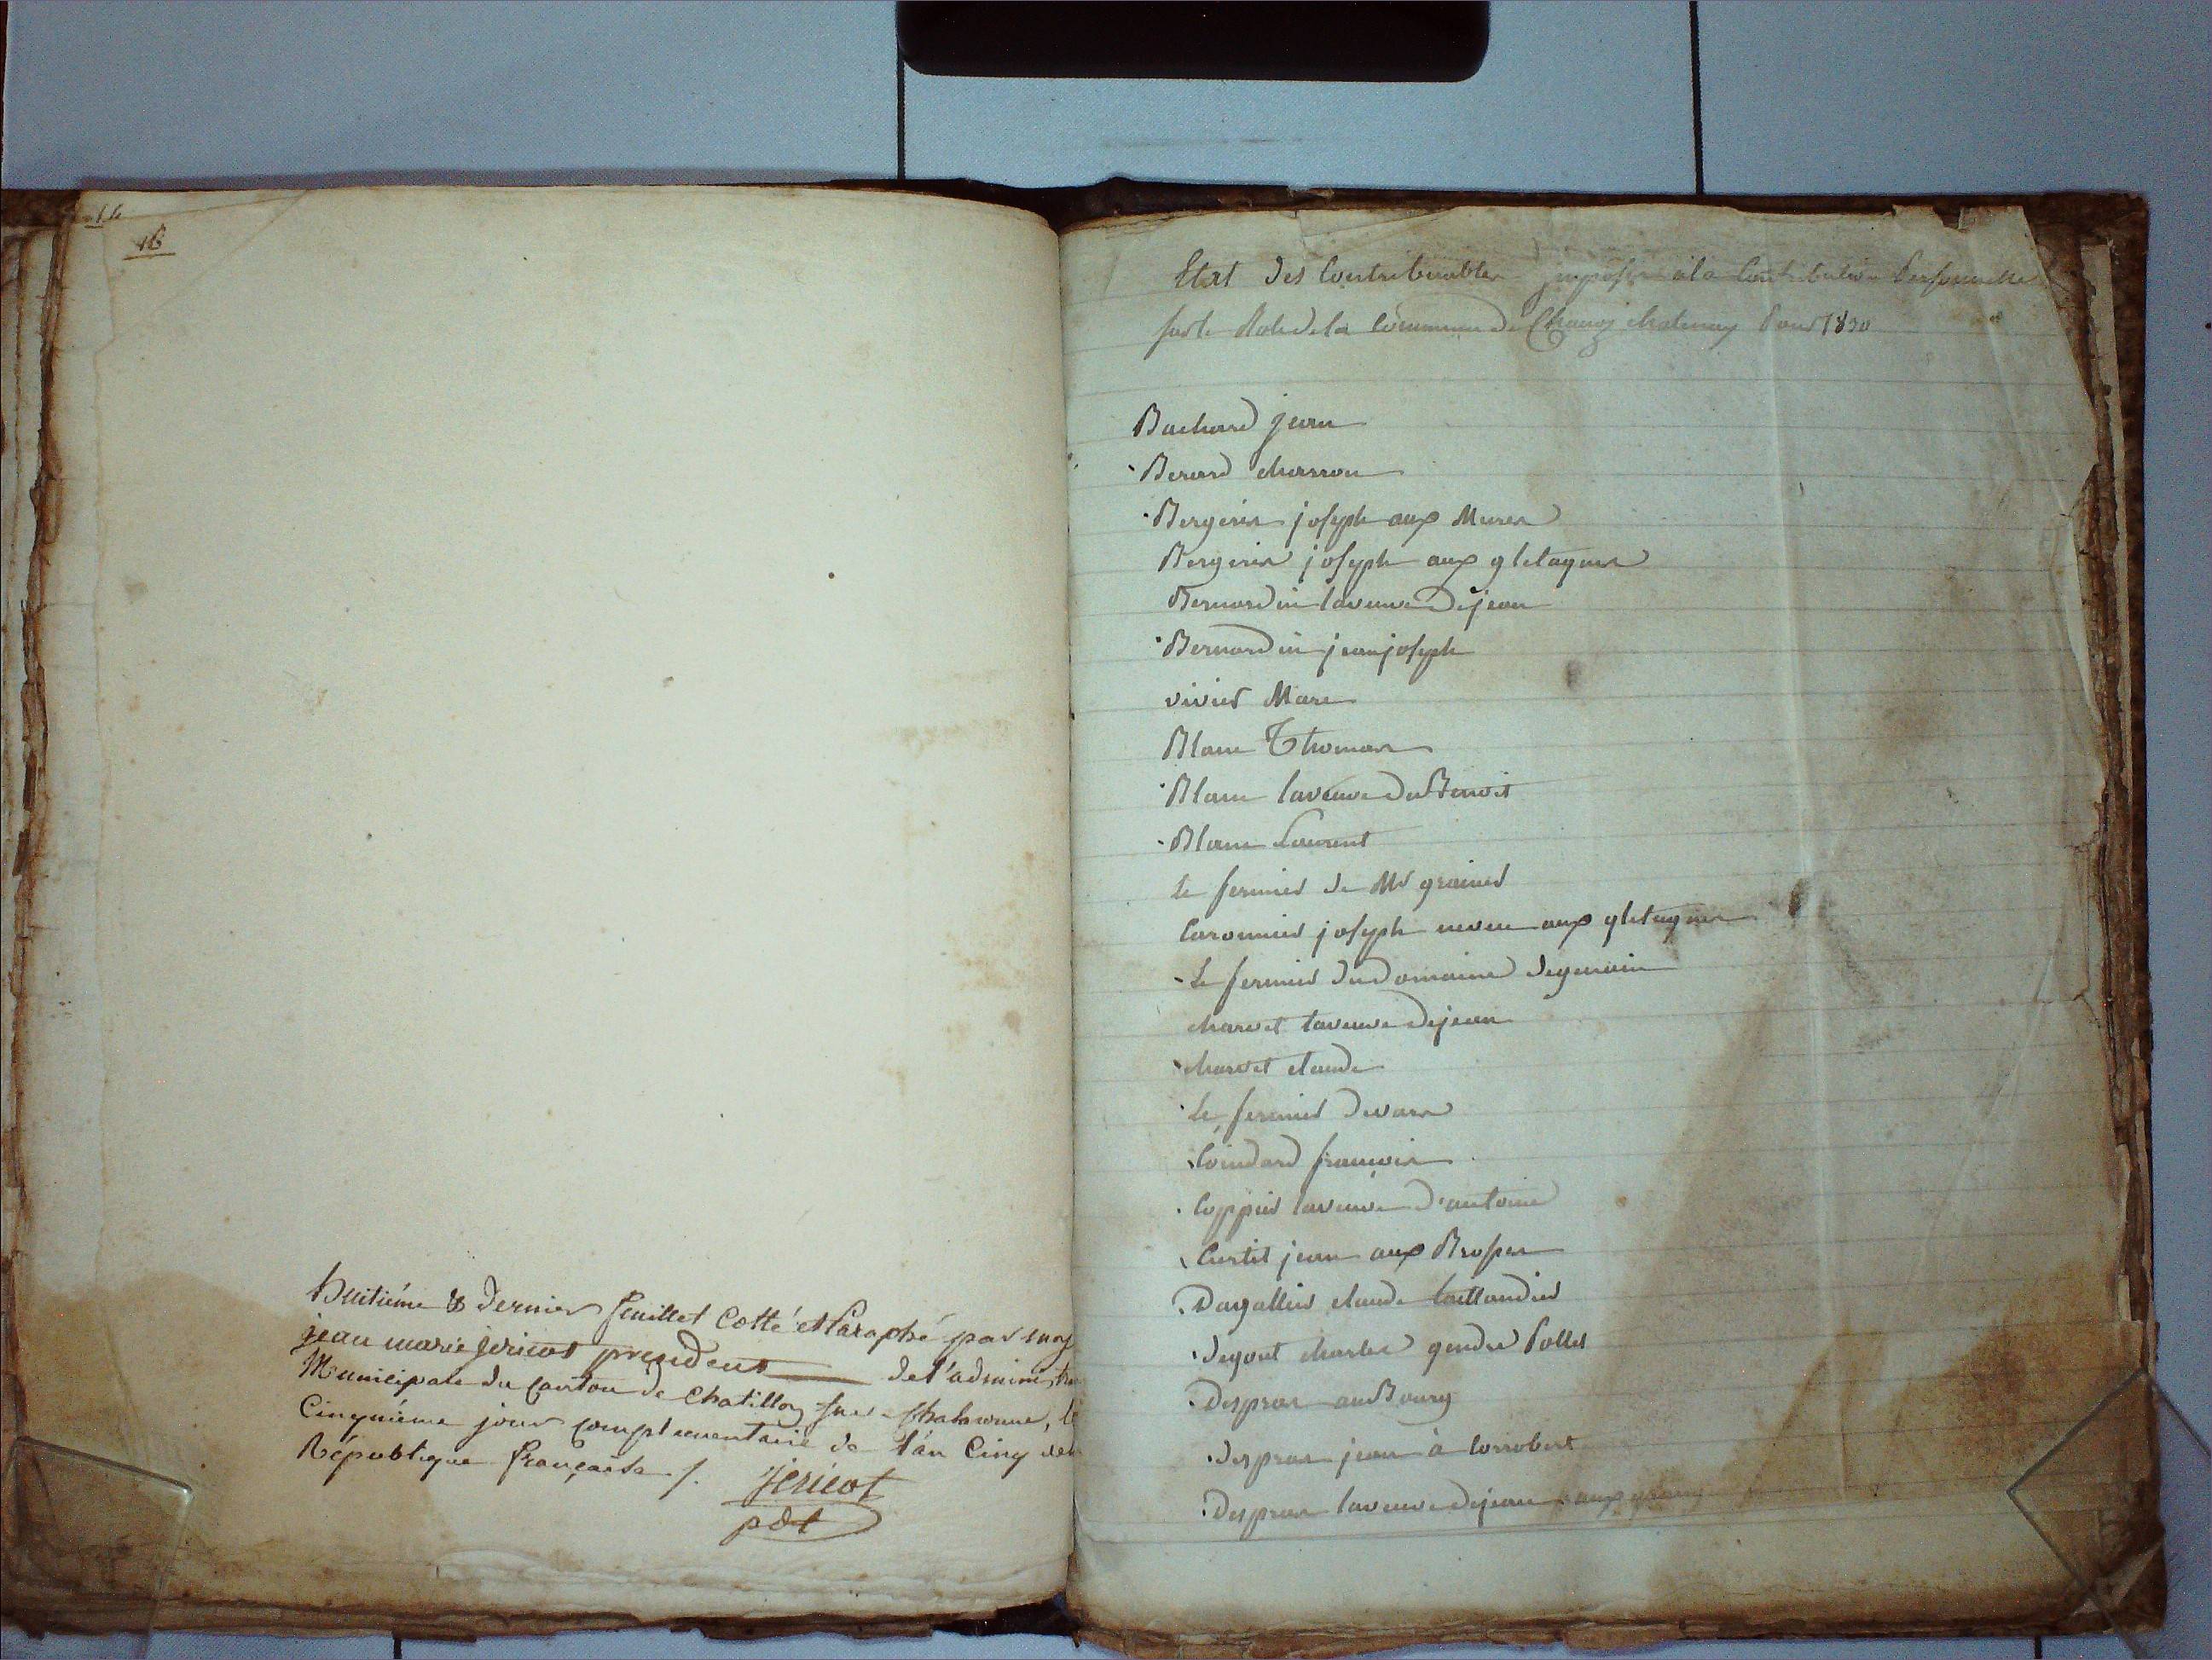 16
huitième & dernier feuillet Cotté et Paraphé par moy
jean marie jericot president de l'administra
Municipale du canton de Chatillon sur Chalaronne, le
Cinquième jour complementaire de l'an Cinq de
République française ./.
jericot
pdt
Etat des Contribuables imposés à la Contribution Personnelle
sur le Role de la Commune de chatenay Pour 1830
Bachard jean
Berard charron
Bergeris joseph aux Mures
Bergeris joseph aux gletagnes
Bernardin la veuve de jean
Bernardin jean joseph
vivier Marc
Blanc Thomas
Blanc la veuve de Benoit
Blanc Laurent
le fermier de Mr
Caronnier joseph neveu aux gletagnes
Le fermier du Domaine
charvet la veuve de jean
charvet claude
le fermier
Coindard françois
Coppier la veuve d'antoine
Curtil jean aux Brosses
Dagallier claude taillandier
degout charles gendre Pollet
Despras au Bourg
despras jean à
Despras la veuve de jean aux